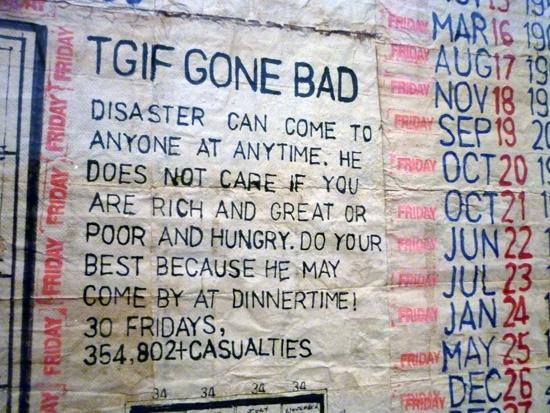 TGIF GONE BAD
DISASTER CAN COME TO
ANYONE AT ANYTIME. HE
DOES NOT CARE IF YOU
ARE RICH AND GREAT OR
POOR AND HUNGRY. DO YOUR
BEST BECAUSE HE MAY
COME BY AT DINNERTIME!
30 FRIDAYS,
354,802+CASUALTIES
34 34 34 34
FRIDAY
FRIDAY
FRIDAY
FRIDAY
FRIDAY
FRIDAY
FRIDAY MAR 16 19
FRIDAY AUG 17 19
FRIDAY NOV 18 19
FRIDAY SEP 19 20
FRIDAY OCT 20 19
FRIDAY OCT 21 19
FRIDAY JUN 22
FRIDAY JUL 23
FRIDAY JAN 24
FRIDAY MAY 25
FRIDAY DEC 26